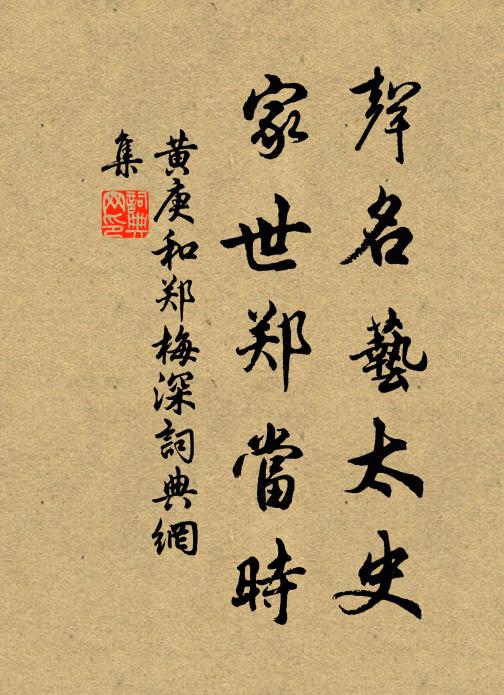 聲名藝太史
家世郑當時
黄庚和郑梅深詞典網
集
詞典
网印